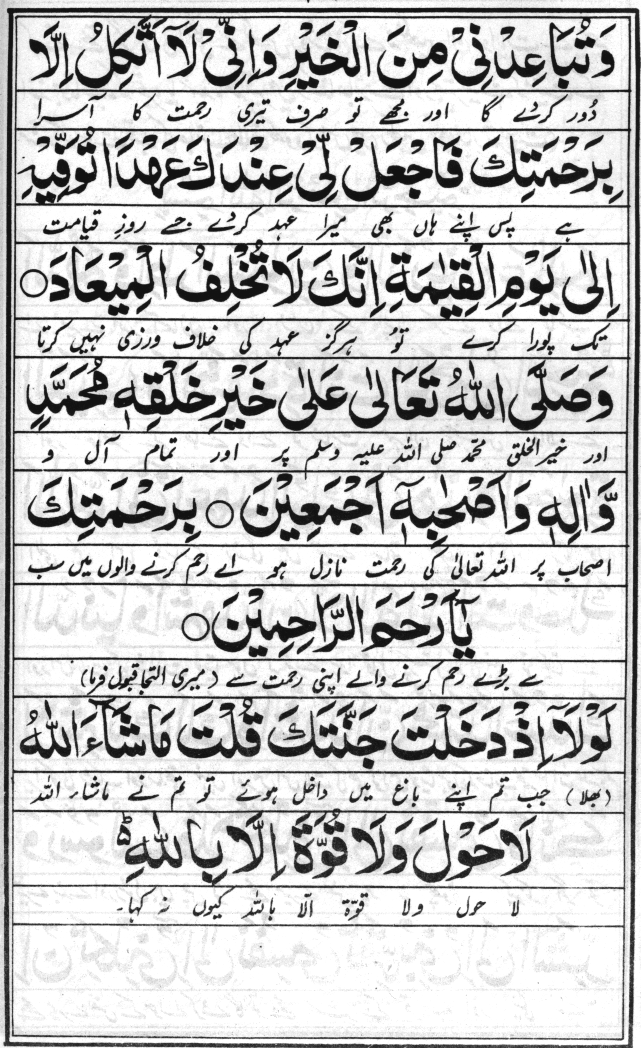 وَتُبَاعِدْنِيْ مِنَ الْخَيْرِ وَاِنِّيْ لَآ اَتَّكِلُ اِلَّا
دُور کردے گا اور مجھے تو صرف تیری رحمت کا آسرا
بِرَحْمَتِكَ فَاجْعَلْ لِّيْ عِنْدَكَ عَهْدًا تُوَفِّيْهِ
ہے پس اپنے ہاں بھی میرا عہد کردے جسے روزِ قیامت
اِلٰى يَوْمِ الْقِيٰمَةِ اِنَّكَ لَا تُخْلِفُ الْمِيْعَادَ○
تک پورا کرے تُو ہرگز عہد کی خلاف ورزی نہیں کرتا
وَصَلَّى اللهُ تَعَالٰى عَلٰى خَيْرِ خَلْقِهٖ مُحَمَّدٍ
اور خیرالخلق محمّد صلی اللہ علیہ وسلم پر اور تمام آل و
وَّاٰلِهٖ وَاَصْحٰبِهٖٓ اَجْمَعِيْنَ○ بِرَحْمَتِكَ
اصحاب پر اللہ تعالیٰ کی رحمت نازل ہو اے رحم کرنے والوں میں سب
يَآ اَرْحَمَ الرَّاحِمِيْنَ○
سے بڑے رحم کرنے والے اپنی رحمت سے (میری التجا قبول فرما)
لَوْلَآ اِذْ دَخَلْتَ جَنَّتَكَ قُلْتَ مَا شَآءَ اللهُ
(بھلا) جب تم اپنے باغ میں داخل ہوئے تو تم نے ماشاء اللہ
لَا حَوْلَ وَلَا قُوَّةَ اِلَّا بِاللهِ
لا حول ولا قوّة الّا باللہ کیوں نہ کہا۔